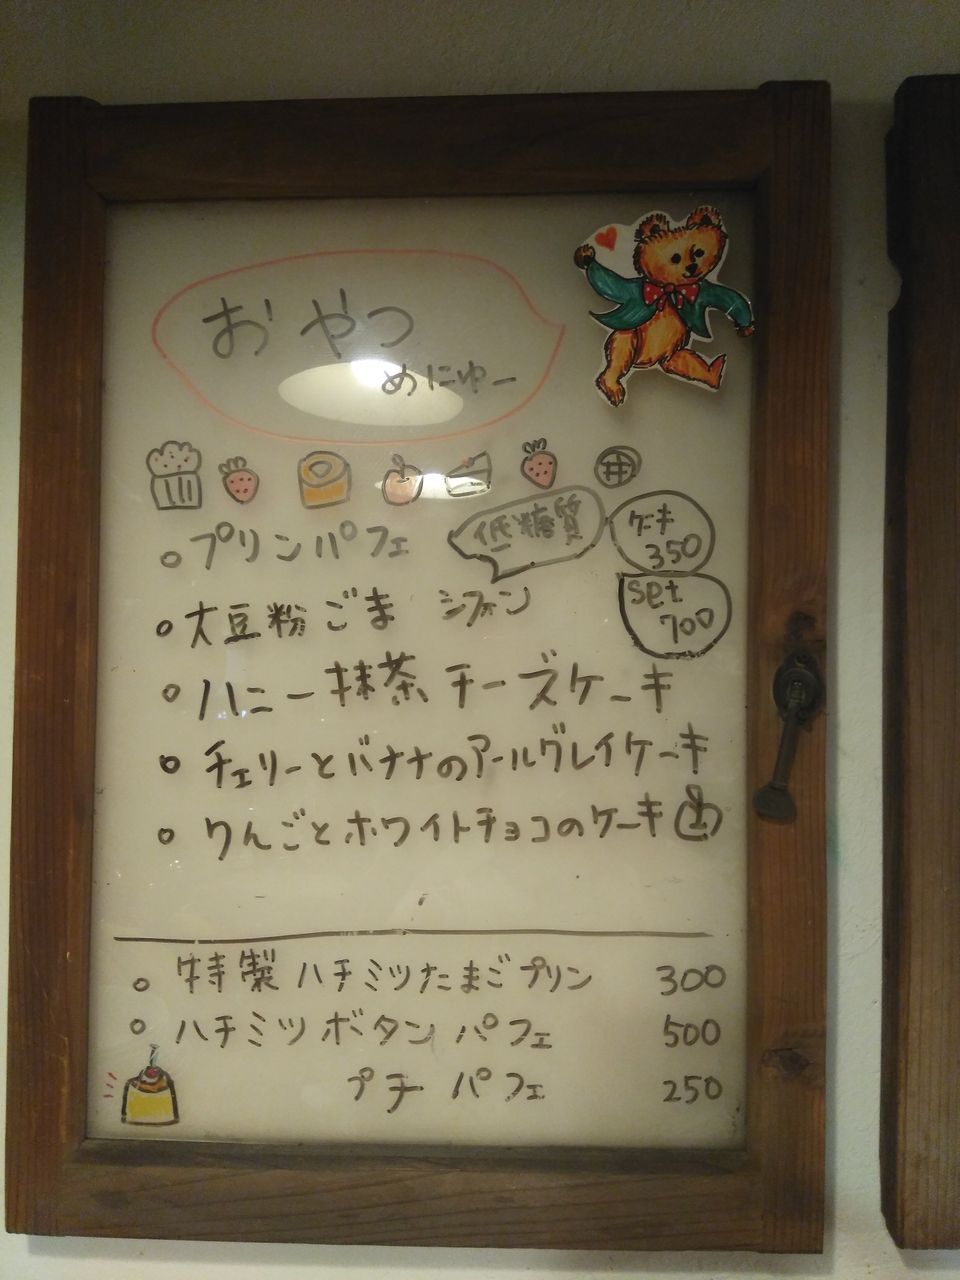 おやつ
めにゅー
プリンパフェ
低糖質
ケーキ
350
set
700
大豆粉ごま シフォン
ハニー抹茶チーズケーキ
チェリーとバナナのアールグレイケーキ
りんごとホワイトチョコのケーキ
特製ハチミツたまごプリン 300
ハチミツボタンパフェ 500
プチパフェ 250